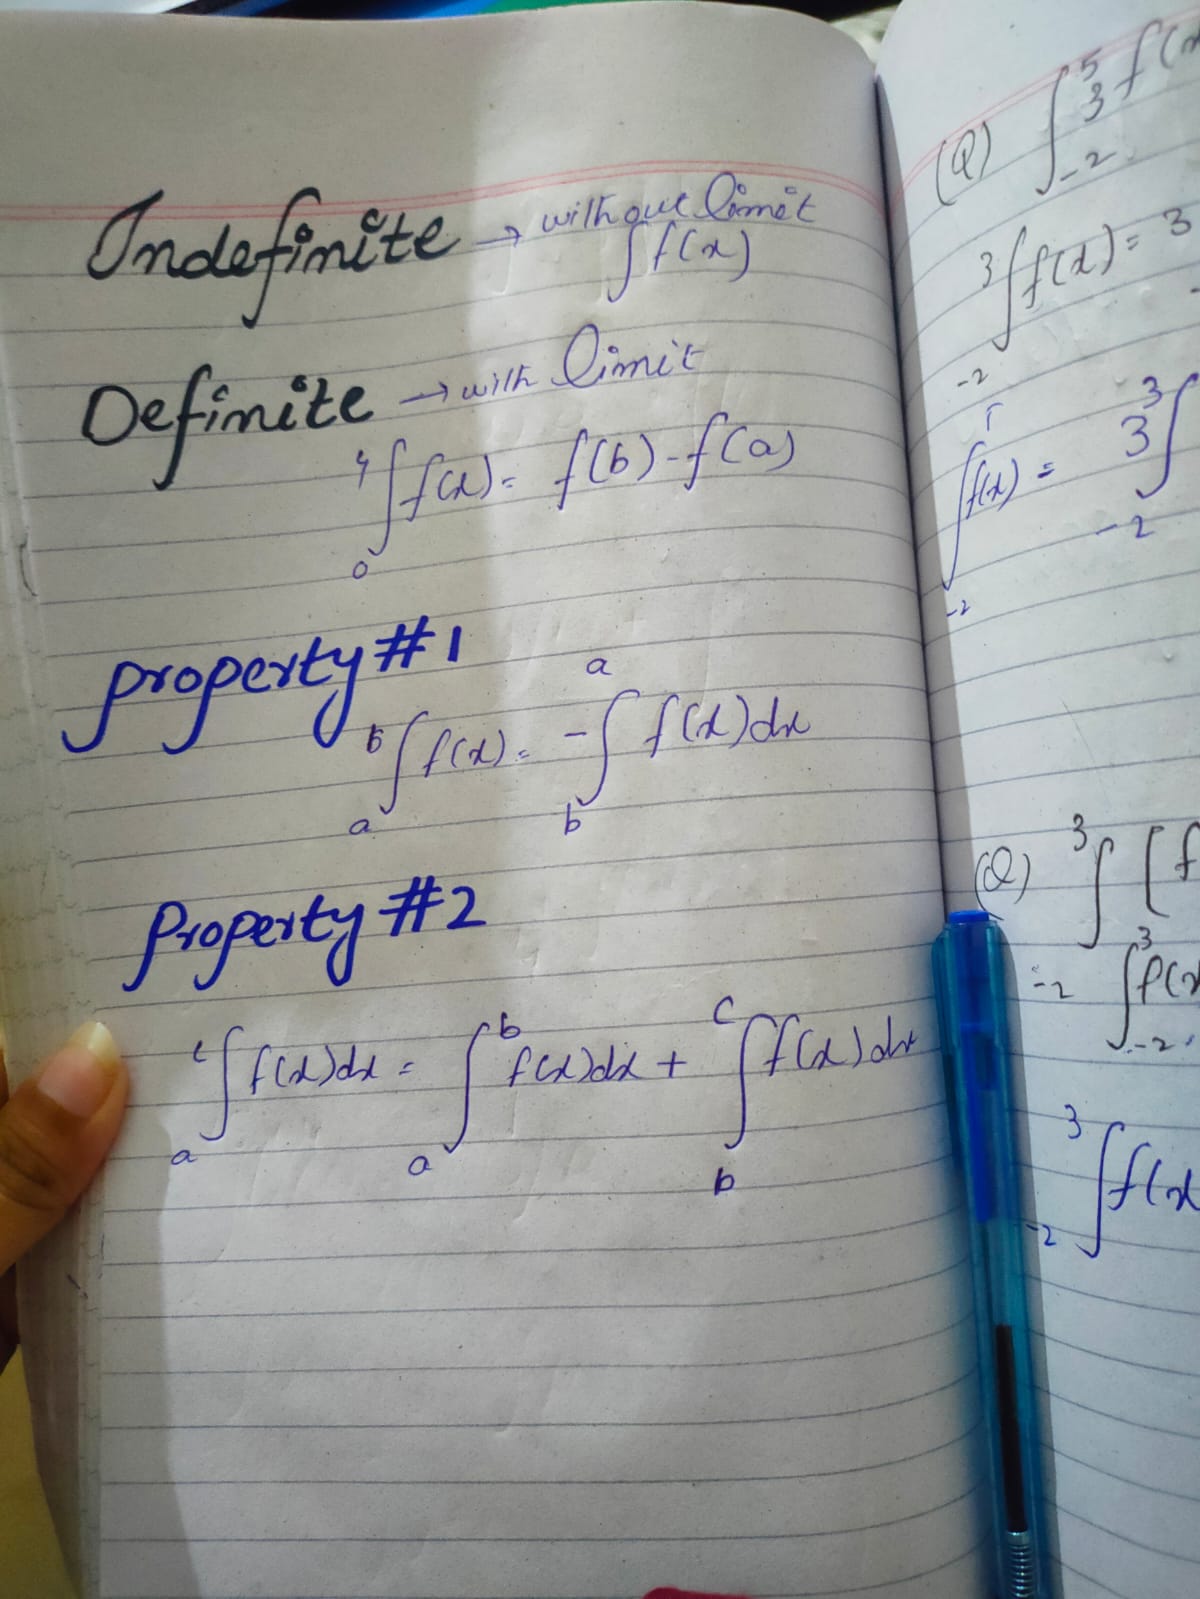 Indefinite → without limit
∫f(x)
Definite → with limit
4∫0 f(x) = f(b) - f(a)
property #1
b∫a f(x) = -a∫b f(x)dx
Property #2
c∫a f(x)dx = ∫a b f(x)dx + c∫b f(x)dx
(Q) ∫-2 5 3 f(x
3 ∫-2 f(x) = 3
∫-2 f(x) = 3 3∫-2
(Q) 3∫-2 [f
3∫-2 f(x
3∫-2 f(x